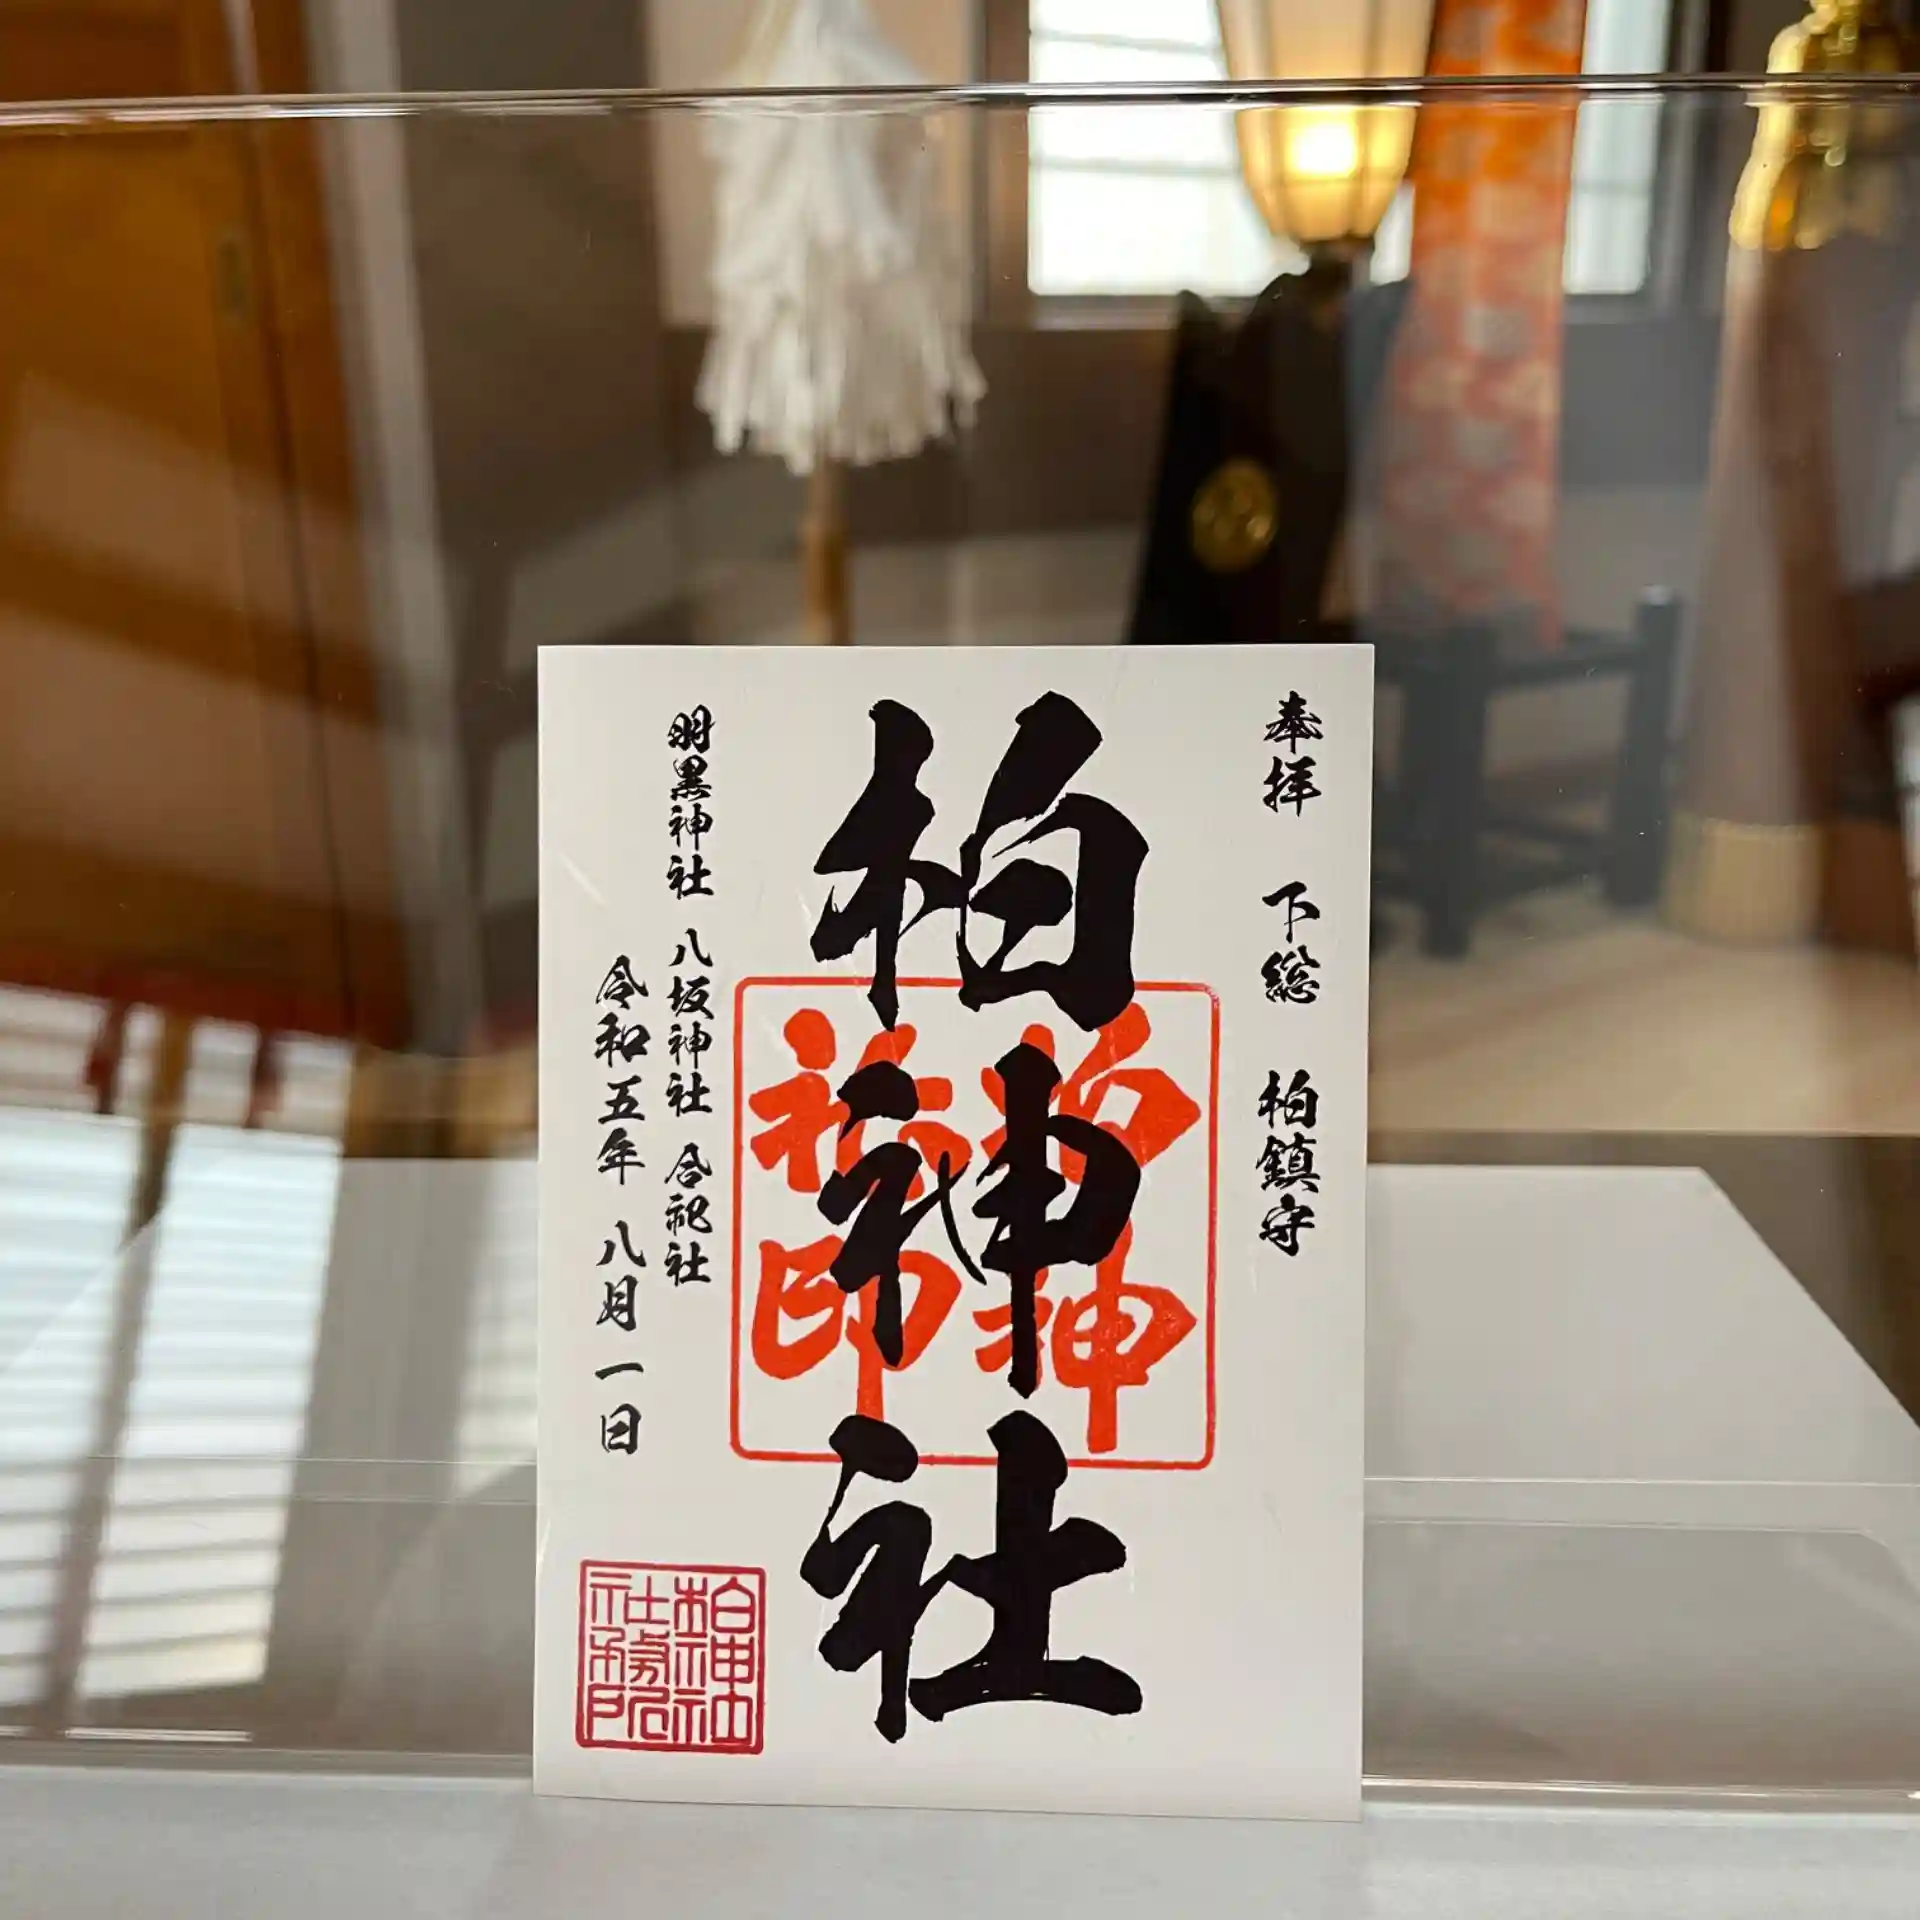 奉拝 下総 柏鎮守
柏神社
羽黒神社 八坂神社 合祀社
令和五年 八月一日
柏神社印
柏神社社務所